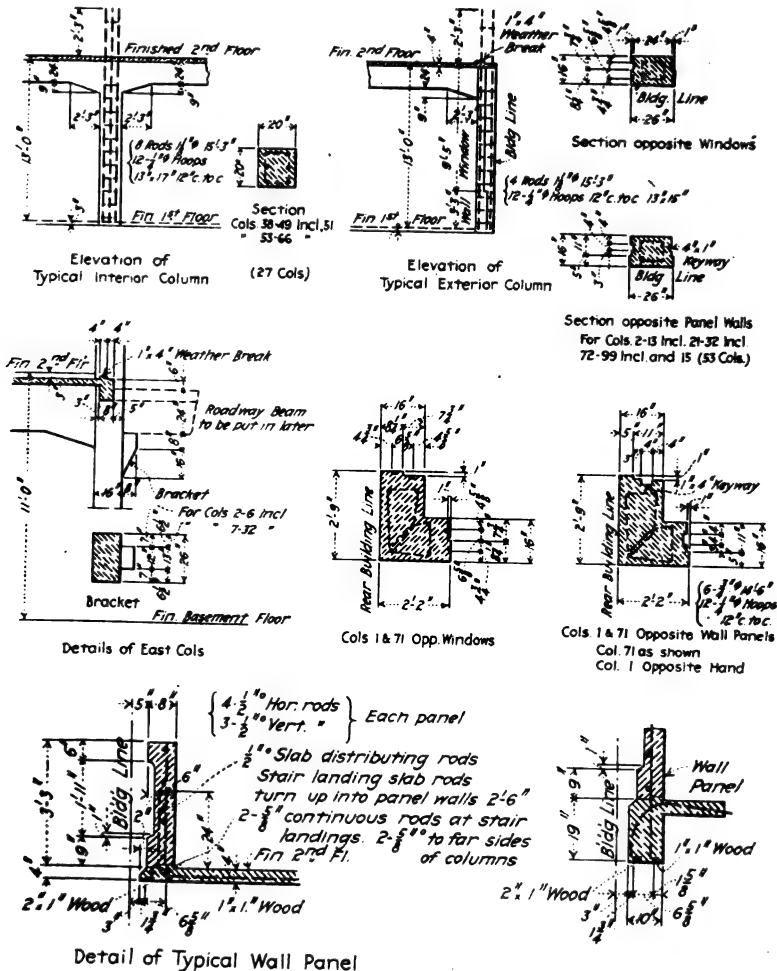 2'-3"
Finished 2nd Floor
24"
24"
9"
9"
2'-3"
2'-3"
13'-0"
5"
Fin 1st Floor
8 Rods 1⅛"φ 15'-3"
12-¼"φ Hoops
13"x17" 12"c.to c
20"
20"
Section
Cols 38-49 Incl, 51
" 53-66 "
(27 Cols)
Elevation of
Typical Interior Column
1"x 4"
Weather
Break
2'-3"
Fin. 2nd Floor
4"
24"
9"
2'-3"
13'-0"
9'-5"
Window
3'-3"
Wall
Bldg Line
Fin 1st Floor
4 Rods 1⅛"φ 15'-3"
12-¼"φ Hoops 12"c.to c 13"x15"
Elevation of
Typical Exterior Column
1"
24"
1"
16"
Bldg. Line
26"
Section opposite Windows
4"
4"
16"
11"
5"
3"
4"x 1"
Keyway
Bldg Line
26"
Section opposite Panel Walls
For Cols. 2-13 Incl. 21-32 Incl.
72-99 Incl. and 15 (53 Cols.)
4"
4"
1"x 4" Weather Break
Fin 2nd Flr
6"
3"
3"
8"
5"
Roadway Beam
to be put in later
24"
8"
16"
11'-0"
16"
8"
Bracket
For Cols 2-6 Incl
" " 7-32 "
7"
12"
7"
6½"
13"
6½"
26"
Bracket
Fin. Basement Floor
Details of East Cols
16"
8¼"
7¾"
4¾"
6⅝"
4⅝"
1"
1"
2'-9"
Rear Building Line
16"
2'-2"
6⅝"
4¾"
Cols 1 & 71 Opp. Windows
16"
5"
11"
3"
4"
4"
1"
1"x 4" Keyway
1"
2'-9"
Rear Building Line
16"
2'-2"
6-¾"φ 14'-6"
12-¼"φ Hoops
12"c. to c.
Cols. 1 & 71 Opposite Wall Panels
Col. 71 as shown
Col. 1 Opposite Hand
5"
8"
4-½"° Hor. rods
3-½"° Vert. "
Each panel
½"° Slab distributing rods
Stair landing slab rods
turn up into panel walls 2'-6"
2-⅝"° continuous rods at stair
landings. 2-⅝"° to far sides
of columns
Fin 2nd Fl.
Bldg Line
6"
1'-11"
3'-3"
9"
4"
1"
2"
6"
24"
4"
2"x 1" Wood
3"
1¾"
6⅝"
1"x 1" Wood
Detail of Typical Wall Panel
1"
9"
19"
Bldg Line
Wall
Panel
1"x 1" Wood
2"x 1" Wood
3"
1¾"
10"
1⅝"
6⅝"